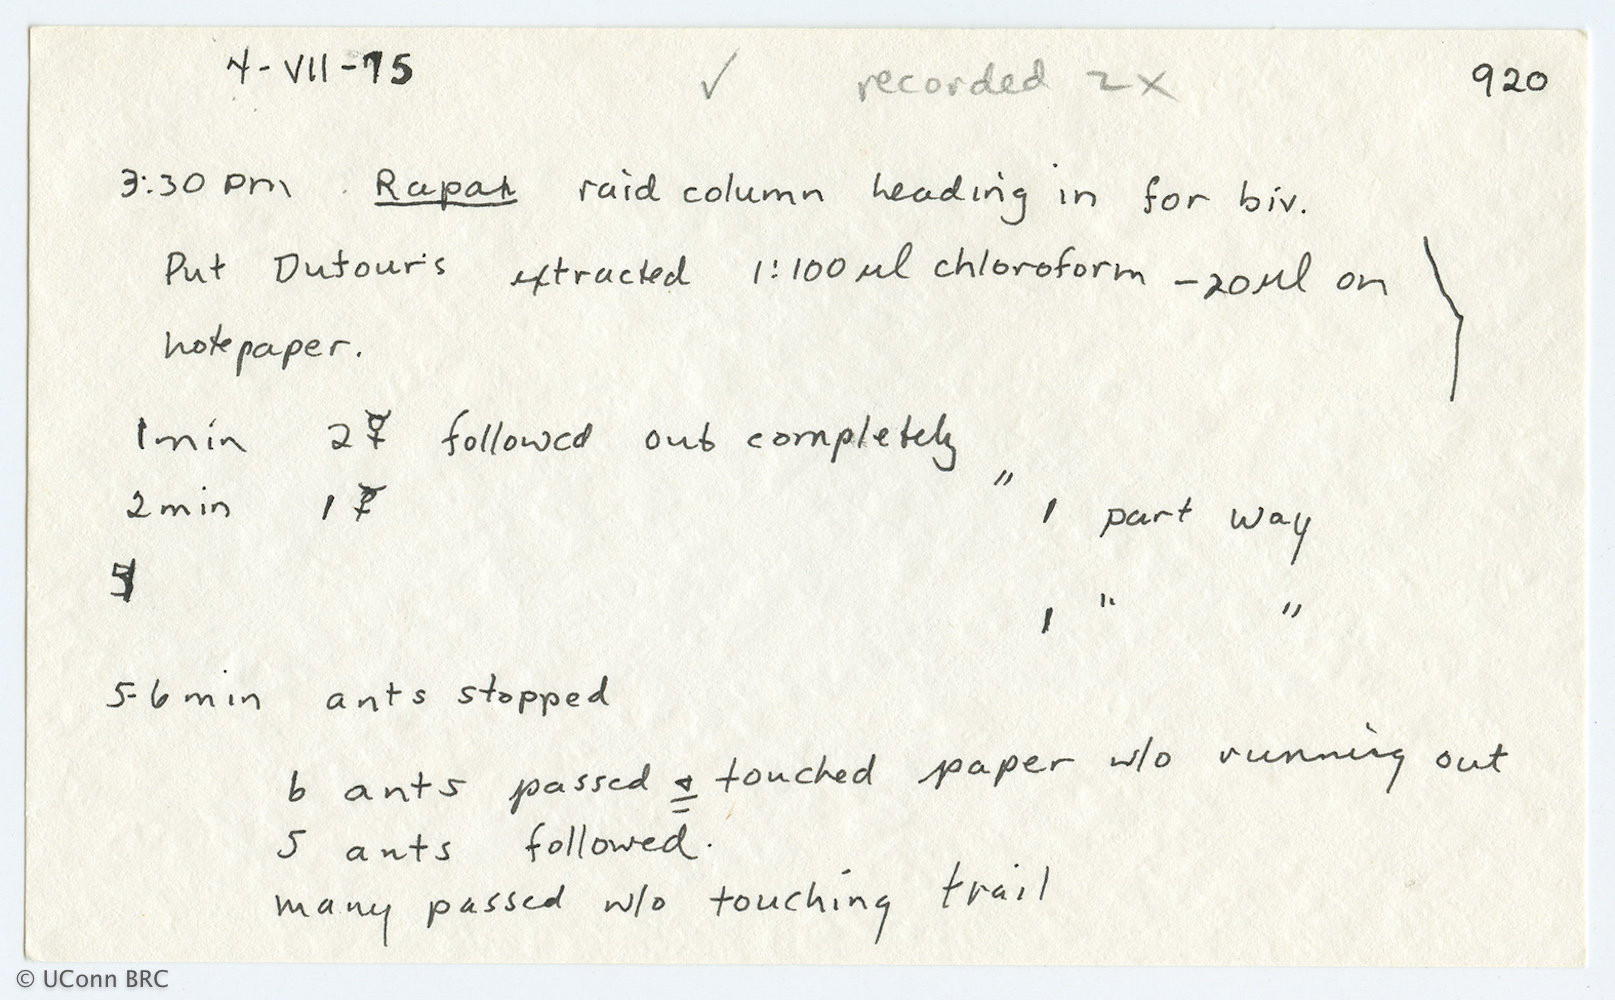 4-VII-75 ✓ recorded 2x 920
3:30 pm. Rapax raid column heading in for biv.
Put Dufour's extracted 1:100 µl chloroform - 20 µl on
notepaper.
1 min 2☿ followed out completely
2 min 1☿ " 1 part way
1 " "
5-6 min ants stopped
6 ants passed & touched paper w/o running out
5 ants followed.
many passed w/o touching trail
© UConn BRC